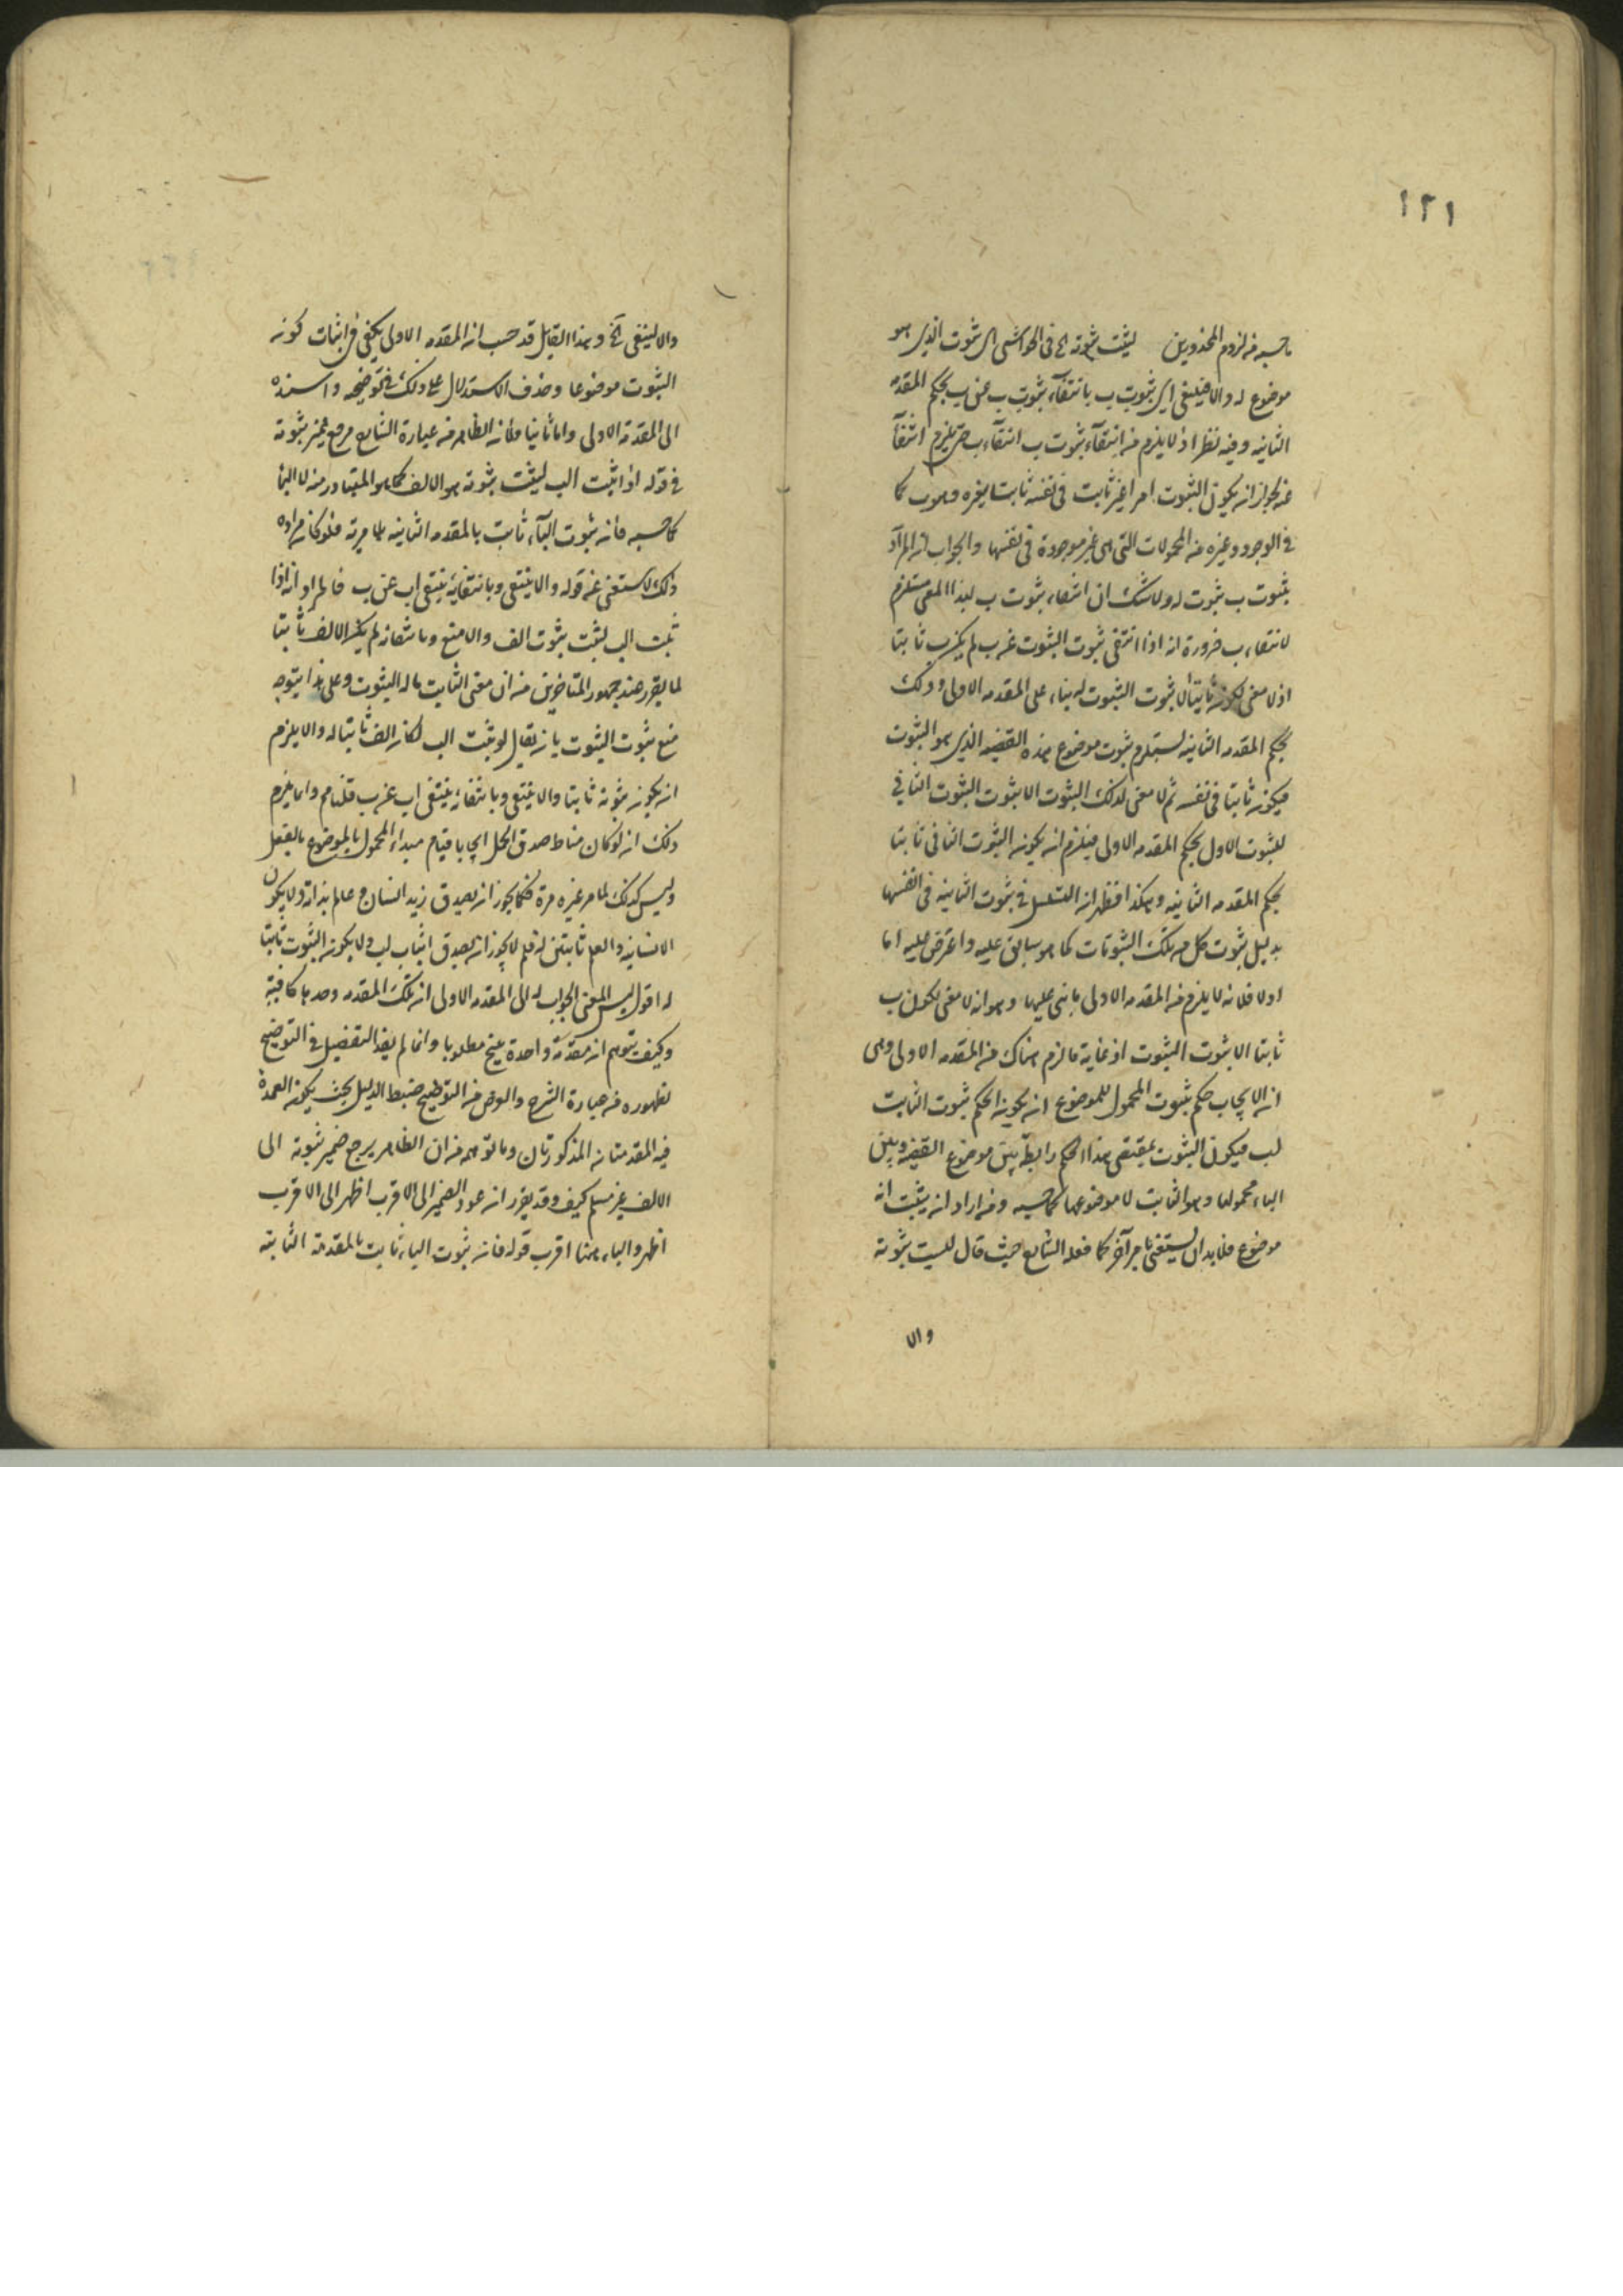 ١٢١
ما حسبه من لزوم المحذورين ليثبت ثبوته الخ في الحواشي اى ثبوت الذي هو
موضوع له والا فينتفي اى ثبوت ب بانتفآء ثبوت ب عن ب بحكم المقدمه
الثانيه وفيه نظر اذ لا يلزم من انتفآء ثبوت ب انتفآء ب حتى يلزم انتفآ
عنه لجواز ان يكون الثبوت امرا غير ثابت في نفسه ثابتا لغيره وهو ب كما
في الوجود وغيره من المحمولات التي هي غير موجودة في نفسها والجواب ان المراد
بثبوت ب ثبوت له ولا شك ان انتفاء ثبوت ب لهذا المعنى مستلزم
لانتفاء ب ضرورة انه اذا انتفى ثبوت الثبوت عن ب لم يكن ب ثابتا
اذ لا معنى لكونه ثابتا الا ثبوت الثبوت له بناء على المقدمه الاولى وذلك
بحكم المقدمه الثانيه يستلزم ثبوت موضوع هذه القضيه الذي هو الثبوت
فيكون ثابتا في نفسه ثم لا معنى لذلك الثبوت الا ثبوت الثبوت الثاني
للثبوت الاول بحكم المقدمه الاولى فيلزم ان يكون الثبوت الثاني ثابتا
بحكم المقدمه الثانيه وهكذا فظهر ان التسلسل في ثبوت الثانيه في انفسها
بدليل ثبوت كل من تلك الثبوتات كما هو سابق عليه واعترض عليه اما
اولا فلانه لا يلزم من المقدمه الاولى ما بنى عليها وهو انه لا معنى لكون ب
ثابتا الا ثبوت الثبوت اذ غاية ما لزم هناك من المقدمه الاولى وهى
ان الايجاب حكم بثبوت المحمول للموضوع ان يكون الحكم ثبوت الثابت
لب فيكون الثبوت بمقتضى هذا الحكم رابطة بين موضوع القضيه وبين
الباء محمولها وهو الثابت لا موضوعها كما حسبه ومن اراد ان يثبت انه
موضوع فلا بد ان يستعين بامر آخر كما فعله الشارح حيث قال ليثبت ثبوته
والا
والا لينتفي آلخ وهذا القايل قد حسب ان المقدمه الاولى يكفي في اثبات كونه
الثبوت موضوعا وحذف الاستدلال على ذلك في توضيحه واسنده
الى المقدمة الاولى واما ثانيا فلان الظاهر من عبارة الشارح مرجع ضمير ثبوته
في قوله اذا ثبت الب ليثبت ثبوته هو الالف كما هو المتبادر منه لا البا
كما حسبه فان ثبوت البآء ثابت بالمقدمه الثانيه لما مر به فلو كان مراده
ذلك لاستغنى عن قوله والا ينتفي وبانتفايه ينتفي اب عن ب فالمراد انه اذا
ثبت الب لثبت ثبوت الف والا منتع وبانتفائه لم يكن الالف ثابتا
لما تقرر عند جمهور المتاخرين من ان معنى الثابت ما له الثبوت وعلى هذا يتوجه
منع ثبوت الثبوت بان يقال لو ثبت الب لكان الف ثابتا له والا يلزم
ان يكون ثبوته ثابتا والا ينتفي وبانتفائه ينتفي اب عن ب قلنا مم وانما يلزم
ذلك ان لو كان مناط صدق الحمل ايجابا قيام مبداء المحمول بالموضوع بالفعل
وليس كذلك لما مر غيره مرة فكما يجوز ان يصدق زيد انسان و عالم بذاته ولا يكون
الانسانيه والعلم ثابتين له فلم لا يجوز ان يصدق اثبات لب ولا يكون الثبوت ثابتا
له اقول ليس المعنى الجواب له الى المقدمه الاولى ان تلك المقدمه وحدها كافية
وكيف يتوهم ان مقدمة واحدة ينتج مطلوبا وانما لم يفد التفصيل في التوضيح
لظهوره من عبارة الشرح والغرض من التوضيح ضبط الدليل بحيث يكون العمدة
فيه المقدمتان المذكورتان وما توهمه من ان الظاهر يرجع ضمير ثبوته الى
الالف غير مسلم كيف وقد تقرر ان عود الضمير الى الاقرب اظهر الى الاقرب
اظهر والباء ههنا اقرب قوله فانه ثبوت الباء ثابت بالمقدمة الثانيه